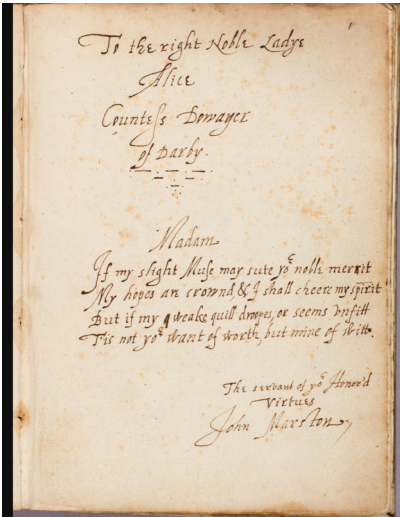 To the right Noble Ladye
Alice
Countess Dowager
of Darby.
Madam
If my slight Muse may sute yor noble merrit
My hopes are crownd, & I shall cheere my spirit
But if my weake quill droopes, or seems unfitt
Tis not yor want of worth, but mine of witt.
The servant of yor Honor'd
Virtues
John Marston